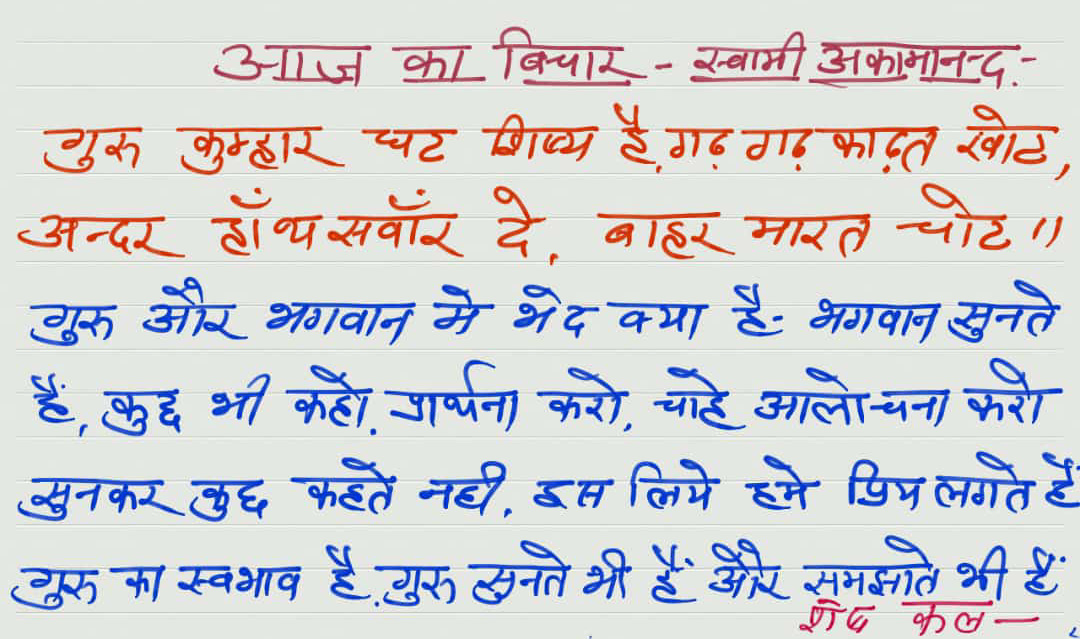 आज का विचार - स्वामी अकामानन्द :-
गुरु कुम्हार घट शिष्य है, गढ़ गढ़ काढ़त खोट,
अन्दर हाँथ सवाँर दे, बाहर मारत चोट ॥
गुरु और भगवान मे भेद क्या है:- भगवान सुनते
हैं, कुछ भी कहो, प्रार्थना करो, चाहे आलोचना करो
सुनकर कुछ कहते नही, इस लिये हमे प्रिय लगते हैं
गुरु का स्वभाव है, गुरु सुनते भी हैं और समझाते भी हैं
शेष कल —